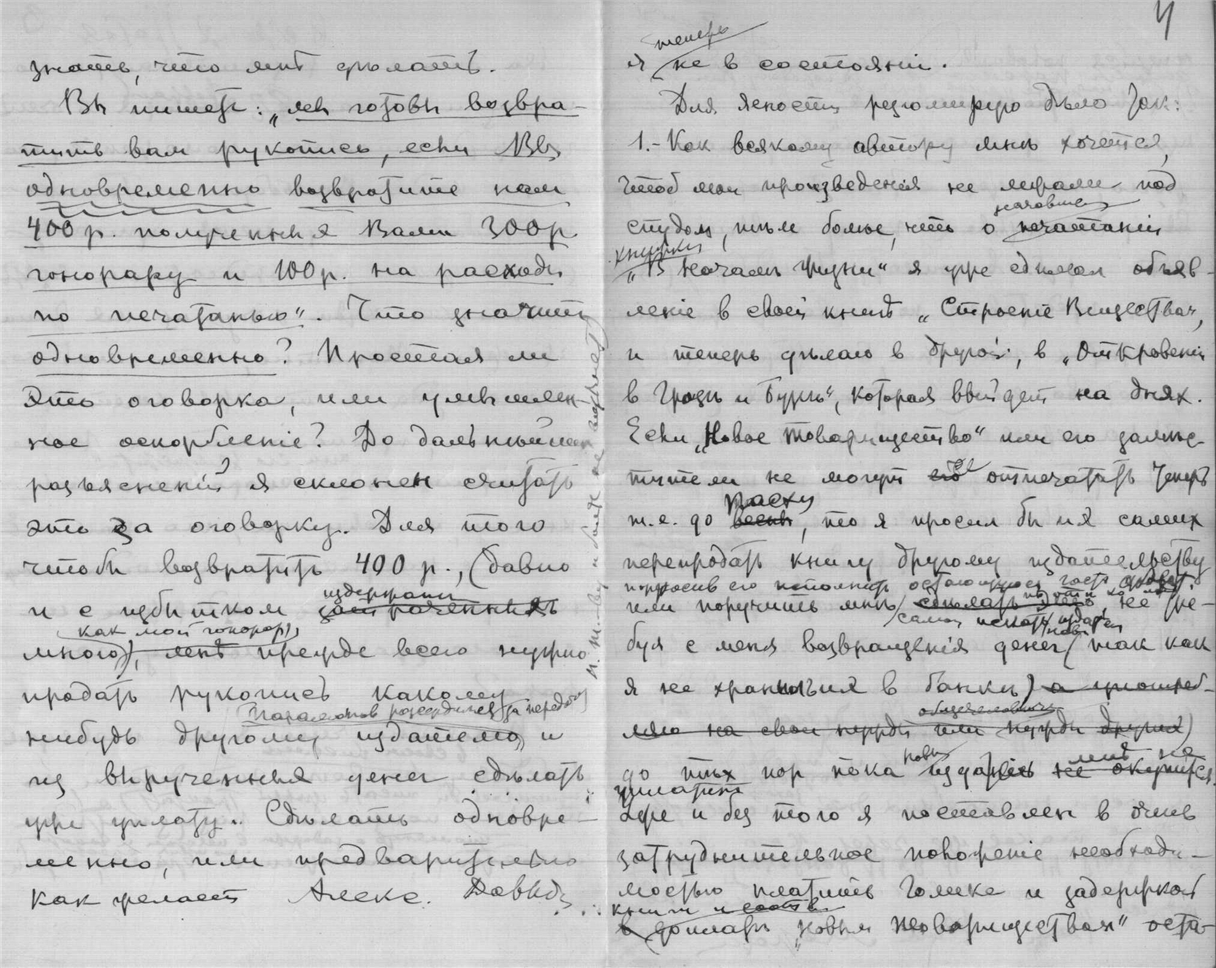 знать, что мнѣ дѣлать.
Вы пишете: „мы готовы возвра-
тить вам рукопись, если Вы
одновременно возвратите нам
400 р. полученныя Вами 300 р
гонорару и 100 р. на расходы
по печатанью“. Что значит
одновременно? Простая ли
это оговорка, или умышлен
ное оскорбленіе? До дальнѣйших
разъясненій я склонен считать
это за оговорку. Для того
чтобы возвратить 400 р., (давно
издержки
и с избытком затраченных
как мой гонорар),
много), мнѣ прежде всего нужно
продать рукопись какому
нибудь другому издателю и
из вырученныя денег сдѣлать
уже уплату. Сдѣлать одновре-
менно, или предварительно
как желает Алекс. Давыд.
4
теперь
я не в состояніи.
Для ясности резюмирую дѣло так:
1.- Как всякому автору мнѣ хочется,
чтоб мои произведенія не лежали под
спудом, тѣм болѣе, что о печатаніи
книжки
„В Началѣ Жизни“ я уже сдѣлал объяв-
леніе в своей книгѣ „Строеніе Вещества“,
и теперь дѣлаю в другой, в „Откровеніи
в Грозѣ и Бурѣ“, которая выйдет на днях.
Если „Новое Товарищество“ или его замѣс-
тители не могут его отпечатать теперь
Пасхи
т.е. до весны, то я просил бы ея самих
перепродать книгу другому издательству
попросив его исполнить
или поручить мнѣ сдѣлать это, не тре-
самому искать
буя с меня возвращенія денег (так как
я не хранил ея в банкѣ) а употреб-
общечеловѣч
ляю на свои нужды или нужды других)
новый
до тѣх пор пока издатель мнѣ не
уплатит
Уже и без того я поставлен в очень
затруднительное положеніе необходи-
мостью платить Голике и задержкой
книги
„новым Товариществом“ оста-